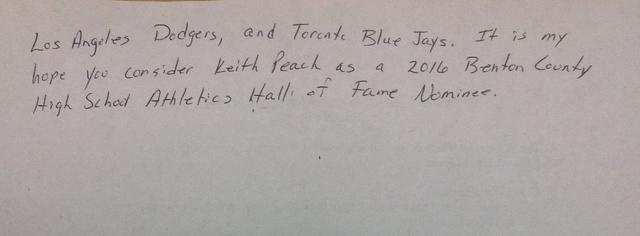 Los Angeles Dodgers, and Toronto Blue Jays. It is my
hope you consider Keith Peach as a 2016 Benton County
High School Athletics Hall of Fame Nominee.